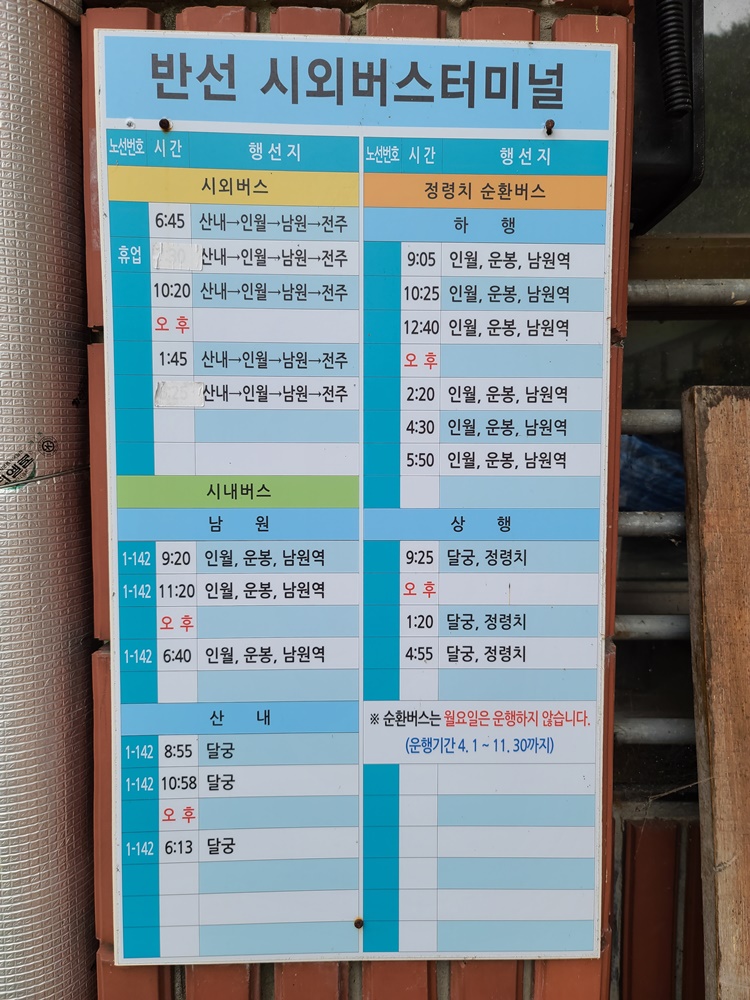 반선 시외버스터미널
노선번호 시간 행선지
시외버스
6:45 산내→인월→남원→전주
휴업 산내→인월→남원→전주
10:20 산내→인월→남원→전주
오후
1:45 산내→인월→남원→전주
산내→인월→남원→전주
시내버스
남 원
1-142 9:20 인월, 운봉, 남원역
1-142 11:20 인월, 운봉, 남원역
오후
1-142 6:40 인월, 운봉, 남원역
산 내
1-142 8:55 달궁
1-142 10:58 달궁
오후
1-142 6:13 달궁
노선번호 시간 행선지
정령치 순환버스
하 행
9:05 인월, 운봉, 남원역
10:25 인월, 운봉, 남원역
12:40 인월, 운봉, 남원역
오후
2:20 인월, 운봉, 남원역
4:30 인월, 운봉, 남원역
5:50 인월, 운봉, 남원역
상 행
9:25 달궁, 정령치
오후
1:20 달궁, 정령치
4:55 달궁, 정령치
※ 순환버스는 월요일은 운행하지 않습니다.
(운행기간 4. 1 ~ 11. 30까지)